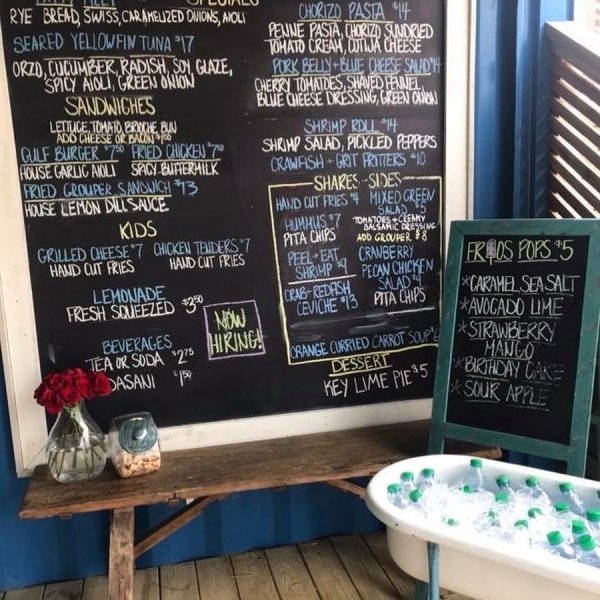 SPECIALS
RYE BREAD, SWISS, CARAMELIZED ONIONS, AIOLI
SEARED YELLOWFIN TUNA $17
ORZO, CUCUMBER, RADISH, SOY GLAZE,
SPICY AIOLI, GREEN ONION
SANDWICHES
LETTUCE, TOMATO, BRIOCHE BUN
ADD CHEESE OR BACON
GULF BURGER $7.50 FRIED CHICKEN
HOUSE GARLIC AIOLI SPICY BUTTERMILK
FRIED GROUPER SANDWICH $13
HOUSE LEMON DILL SAUCE
KIDS
GRILLED CHEESE $7 CHICKEN TENDERS $7
HAND CUT FRIES HAND CUT FRIES
LEMONADE
FRESH SQUEEZED $3.50
BEVERAGES
TEA OR SODA $2.75
DASANI $1.50
NOW
HIRING!
CHORIZO PASTA $14
PENNE PASTA, CHORIZO, SUNDRIED
TOMATO CREAM, COTIJA CHEESE
PORK BELLY + BLUE CHEESE SALAD $14
CHERRY TOMATOES, SHAVED FENNEL,
BLUE CHEESE DRESSING, GREEN ONION
SHRIMP ROLL $14
SHRIMP SALAD, PICKLED PEPPERS
CRAWFISH + GRIT FRITTERS $10
SHARES - SIDES
HAND CUT FRIES $4
HUMMUS $7
PITA CHIPS
PEEL + EAT
SHRIMP $9
CRAB-REDFISH
CEVICHE $13
MIXED GREEN
SALAD
TOMATOES + CREAMY
BALSAMIC DRESSING
ADD GROUPER $8
CRANBERRY
PECAN CHICKEN
SALAD $9
PITA CHIPS
ORANGE CURRIED CARROT SOUP $6
DESSERT
KEY LIME PIE $5
FRIOS POPS $5
*CARAMEL SEA SALT
*AVOCADO LIME
*STRAWBERRY
MANGO
*BIRTHDAY CAKE
*SOUR APPLE